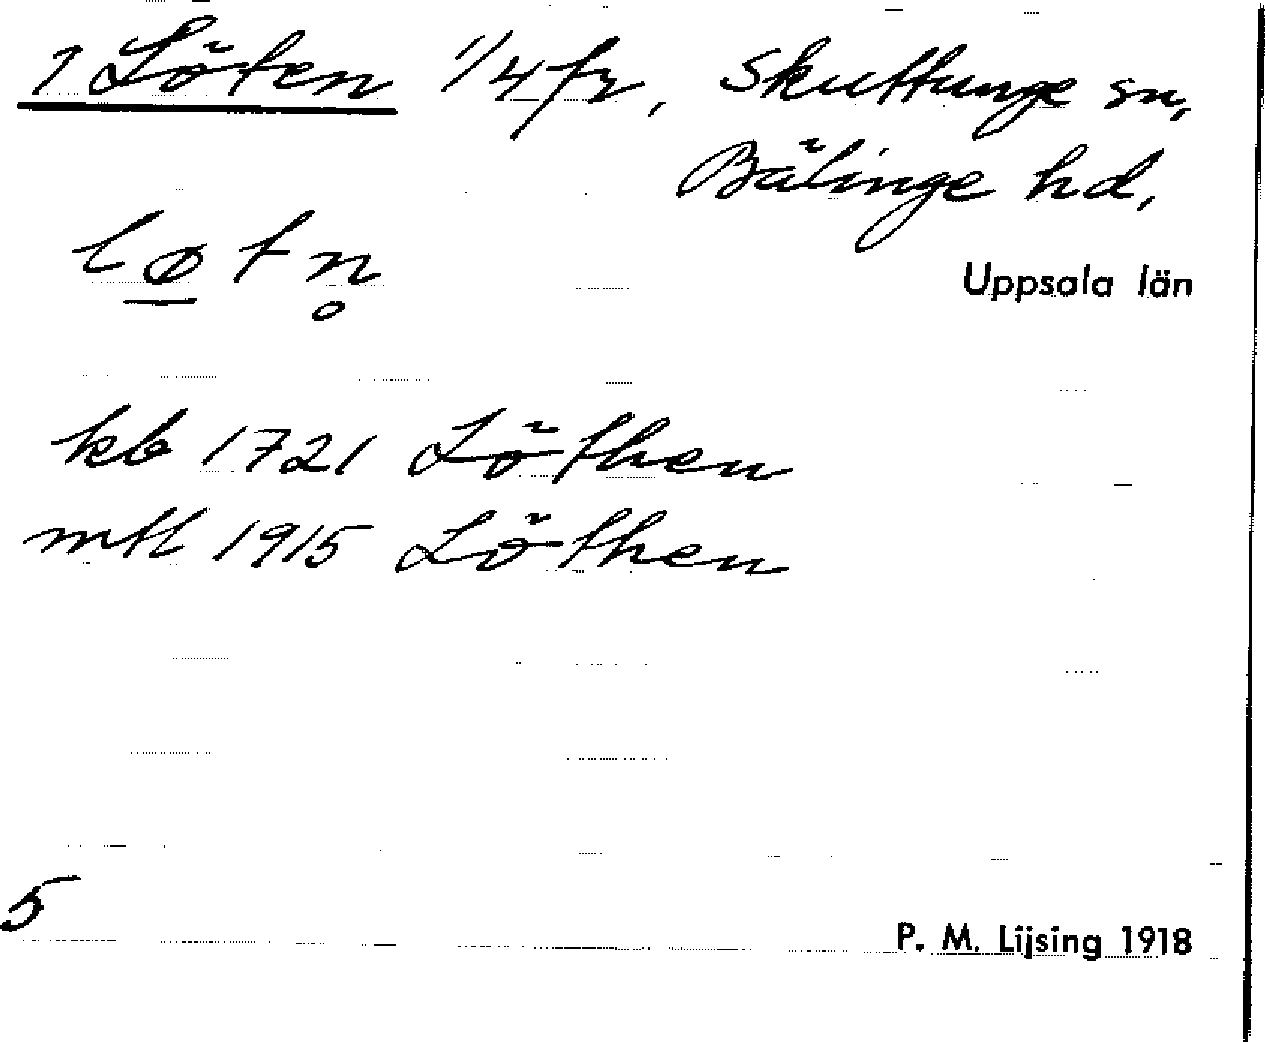 1 Löten 1/4 fr, Skuttunge sn,
Bälinge hd,
løtn̥
Uppsala län
kb 1721 Löthen
mtl 1915 Löthen
5
P. M. Lijsing 1918